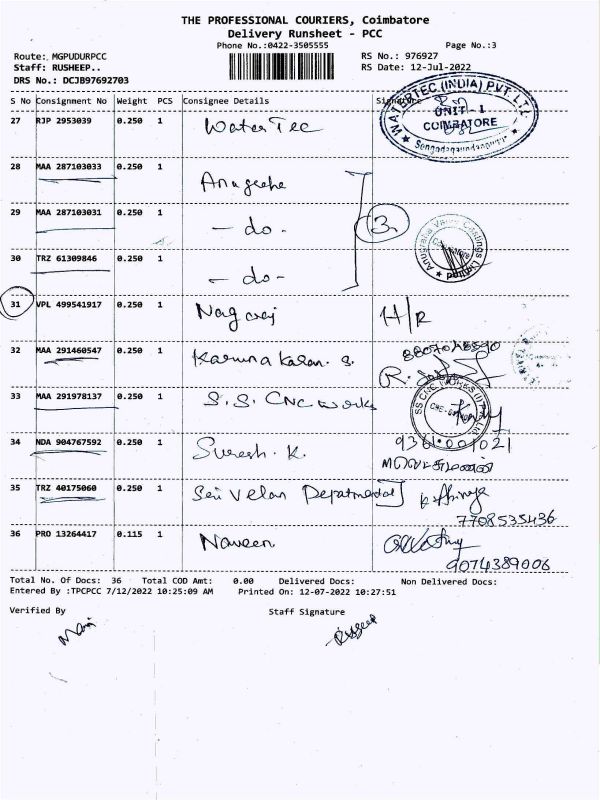 THE PROFESSIONAL COURIERS, Coimbatore
Delivery Runsheet - PCC
Phone No.:0422-3505555 Page No.:3
Route: MGPUDURPCC RS No.: 976927
Staff: RUSHEEP.. RS Date: 12-Jul-2022
DRS No.: DCJB97692703
S No Consignment No Weight PCS Consignee Details Signature
WATERTEC (INDIA) PVT. LTD.
UNIT - 1
COIMBATORE
27 RJP 2953039 0.250 1 Water Tec
28 MAA 287103033 0.250 1 Anugraha
29 MAA 287103031 0.250 1 - do - 3
30 TRZ 61309846 0.250 1 - do -
Anugraha Valve Castings Ltd
31 VPL 499541917 0.250 1 Nagaraj H/R
32 MAA 291460547 0.250 1 Karuna Karan. S.
33 MAA 291978137 0.250 1 S.S. CNC Works
SS CNC WORKS (I) Pvt Ltd
34 NDA 904767592 0.250 1 Suresh. K.
35 TRZ 40175060 0.250 1 Sri Velan Depatmental
7708535436
36 PRO 13264417 0.115 1 Naveen
9074389006
Total No. Of Docs: 36 Total COD Amt: 0.00 Delivered Docs: Non Delivered Docs:
Entered By :TPCPCC 7/12/2022 10:25:09 AM Printed On: 12-07-2022 10:27:51
Verified By Staff Signature
Mani Rusheep